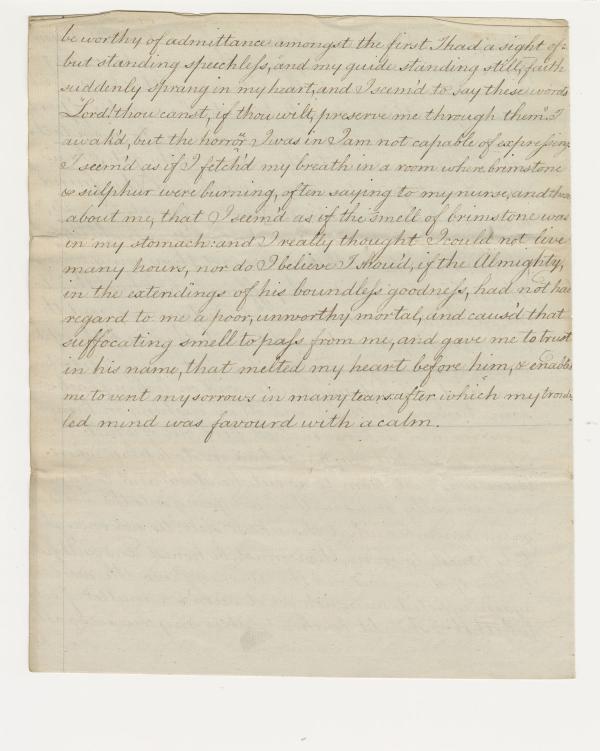 be worthy of admittance amongst the first I had a sight of:
but standing speechleſs, and my guide standing still, faith
suddenly sprang in my heart, and I seem'd to say these words
Lord! thou canst, if thou wilt, preserve me through them. I
awak'd, but the horror I was in I am not capable of expressing
I seem'd as if I fetch'd my breath in a room where brimstone
& sulphur were burning, often saying to my nurse, and those
about me, that I seem'd as if the smell of brimstone was
in my stomach: and I really thought I could not live
many hours, nor do I believe I shou'd, if the Almighty,
in the extendings of his boundleſs goodneſs, had not had
regard to me a poor, unworthy mortal, and caus'd that
suffocating smell to paſs from me, and gave me to trust
in his name, that melted my heart before him, & enabled
me to vent my sorrows in many tears: after which my troub-
led mind was favourd with a calm.